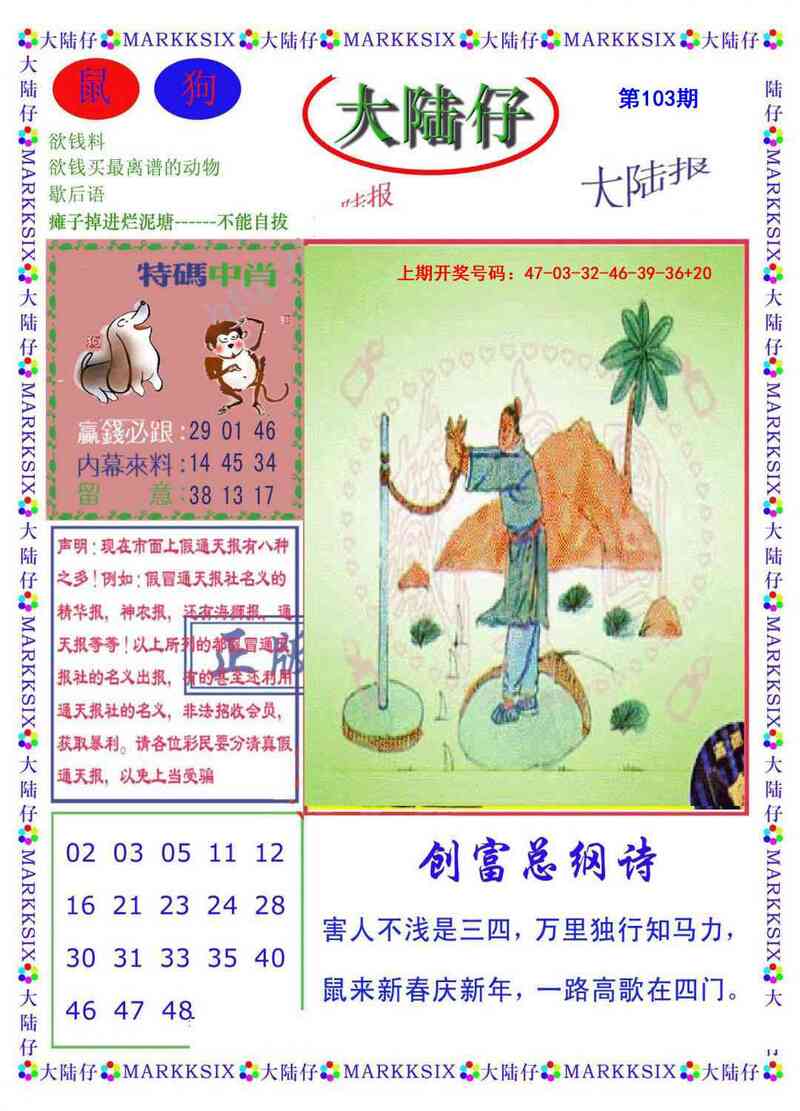 大陆仔 MARKKSIX 大陆仔 MARKKSIX 大陆仔 MARKKSIX 大陆仔
鼠 狗
大陆仔
第103期
欲钱料
欲钱买最离谱的动物
歇后语
瘫子掉进烂泥塘------不能自拔
大陆报
特碼中肖
狗
赢錢必跟:29 01 46
内幕來料:14 45 34
留 意:38 13 17
上期开奖号码：47-03-32-46-39-36+20
声明:现在市面上假通天报有八种
之多!例如:假冒通天报社名义的
精华报，神农报，还有海狮报，通
天报等等!以上所列的都假冒通天
报社的名义出报，有的甚至还利用
通天报社的名义，非法招收会员，
获取暴利。请各位彩民要分清真假
通天报，以免上当受骗
正版
02 03 05 11 12
16 21 23 24 28
30 31 33 35 40
46 47 48
创富总纲诗
害人不浅是三四，万里独行知马力，
鼠来新春庆新年，一路高歌在四门。
大陆仔 MARKKSIX 大陆仔 MARKKSIX 大陆仔 MARKKSIX 大陆仔
大陆仔 MARKKSIX 大陆仔 MARKKSIX 大陆仔 MARKKSIX 大陆仔 MARKKSIX 大陆仔
陆仔 MARKKSIX 大陆仔 MARKKSIX 大陆仔 MARKKSIX 大陆仔 MARKKSIX 大